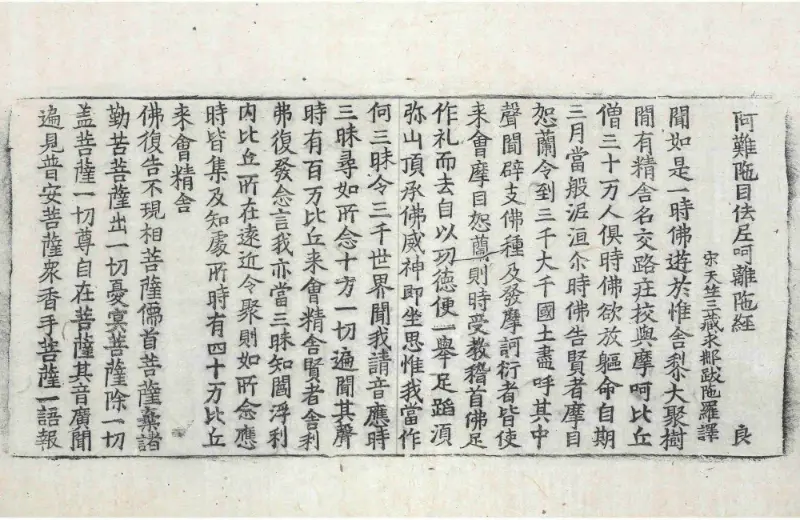 阿難陁目佉尼呵離陁經 良
宋天竺三藏求那跋陁羅譯
聞如是一時佛遊於惟舍梨大聚樹
間有精舍名交路莊校與摩呵比丘
僧三十万人俱時佛欲放軀命自期
三月當般泥洹尒時佛告賢者摩目
恕蘭令到三千大千國土盡呼其中
聲聞辟支佛種及發摩訶衍者皆使
来會摩目恕蘭則時受教稽首佛足
作礼而去自以功德便一舉足蹈湏
弥山頂承佛威神即坐思惟我當作
何三昧令三千世界聞我請音應時
三昧尋如所念十方一切遍聞其聲
時有百万比丘来會精舍賢者舍利
弗復發念言我亦當三昧知閻浮利
内比丘所在遠近令聚則如所念應
時皆集及知處所時有四十万比丘
来會精舍
佛復告不現相菩薩儒首菩薩棄諸
勤苦菩薩出一切憂冥菩薩除一切
盖菩薩一切尊自在菩薩其音廣聞
遍見普安菩薩衆香手菩薩一語報